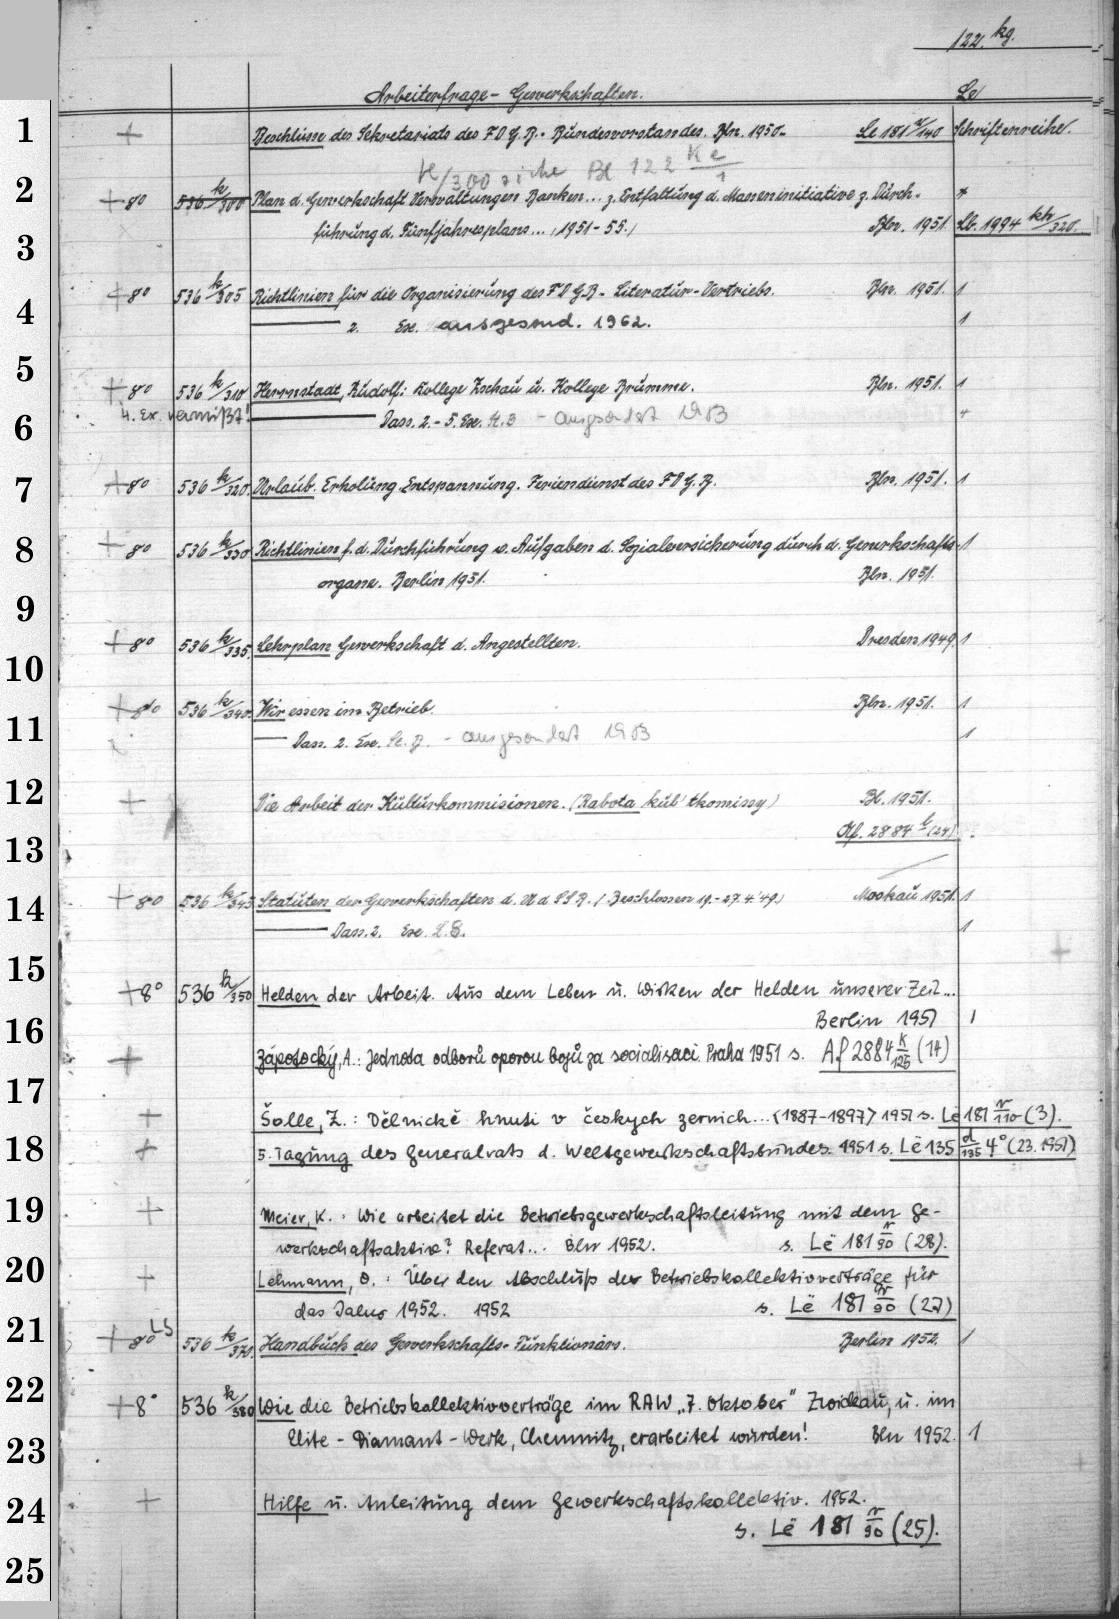 122. kg.
Arbeiterfrage - Gewerkschaften. Le
1 + Beschlüsse des Sekretariats des F D G. B. - Bundesvorstandes. Bln. 1950. Le 181 u/140 Schriftenreihe.
k/300 siehe Bl 122 Ke/1
2 + 8° 536 k/300 Plan d. Gewerkschaft Verwaltungen Banken... z. Entfaltung d. Masseninitiative z. Durch-
3 führung d. Fünfjahresplans... (1951-55.) Bln. 1951. Lb. 1994 kh/320.
+ 8° 536 k/305 Richtlinien für die Organisierung des F D G. B - Literatur-Vertriebs. Bln. 1951. 1
4 2. Ex. ausgesond. 1962. 1
5 + 8° 536 k/310 Herrnstadt, Rudolf: Kollege Zschau u. Kollege Brumme. Bln. 1951. 1
6 4. Ex. vermißt! Dass. 2.-5. Ex. - ausgesondert 1983 +
7 + 8° 536 k/320. Urlaub. Erholung. Entspannung. Feriendienst des F D G. B. Bln. 1951. 1
8 + 8° 536 k/330 Richtlinien f. d. Durchführung v. Aufgaben d. Sozialversicherung durch d. Gewerkschafts- 1
organe. Berlin 1951. Bln. 1951.
9
10 + 8° 536 k/335. Lehrplan Gewerkschaft d. Angestellten. Dresden 1949. 1
+ 8° 536 k/340. Wir essen im Betrieb. Bln. 1951. 1
11 Dass. 2. Ex. - ausgesondert 1983 1
12 + Die Arbeit der Kulturkommisionen. (Rabota kul'tkomissy) Bl. 1951.
13 Af. 2884 (24)
14 + 8° 536 k/345 Statuten der Gewerkschaften d. U d S S R. (Beschlossen 19.-27.4.'49) Moskau 1951. 1
Dass. 2. Ex. 1
15 + 8° 536 k/350 Helden der Arbeit. Aus dem Leben u. Wirken der Helden unserer Zeit...
16 Berlin 1951 1
+ Zápotocký, A.: Jednota odborů oporou bojů za socialisaci. Praha 1951 s. Af 2884 K/125 (14)
17 + Šolle, Z.: Dělnické hnutí v českych zemich... <1887-1897> 1951 s. Lë 181 r/110 (3).
18 + 5. Tagung des Generalrats d. Weltgewerkschaftsbundes. 1951 s. Lë 135 d/135 4° (23.1951)
19 + Meier, K.: Wie arbeitet die Betriebsgewerkschaftsleitung mit dem Ge-
werkschaftsaktiv? Referat... Bln 1952. s. Lë 181 r/90 (28).
20 + Lehmann, O.: Über den Abschluß der Betriebskollektivverträge für
das Jahr 1952. 1952 s. Lë 181 r/90 (27)
21 + 8° LS 536 k/370. Handbuch des Gewerkschafts-Funktionärs. Berlin 1952. 1
22 + 8° 536 k/380 Wie die Betriebskollektivverträge im RAW „7. Oktober" Zwickau, u. im
23 Elite - Diamant - Werk, Chemnitz, erarbeitet wurden! Bln 1952. 1
24 + Hilfe u. Anleitung dem Gewerkschaftskollektiv. 1952.
s. Lë 181 r/90 (25).
25